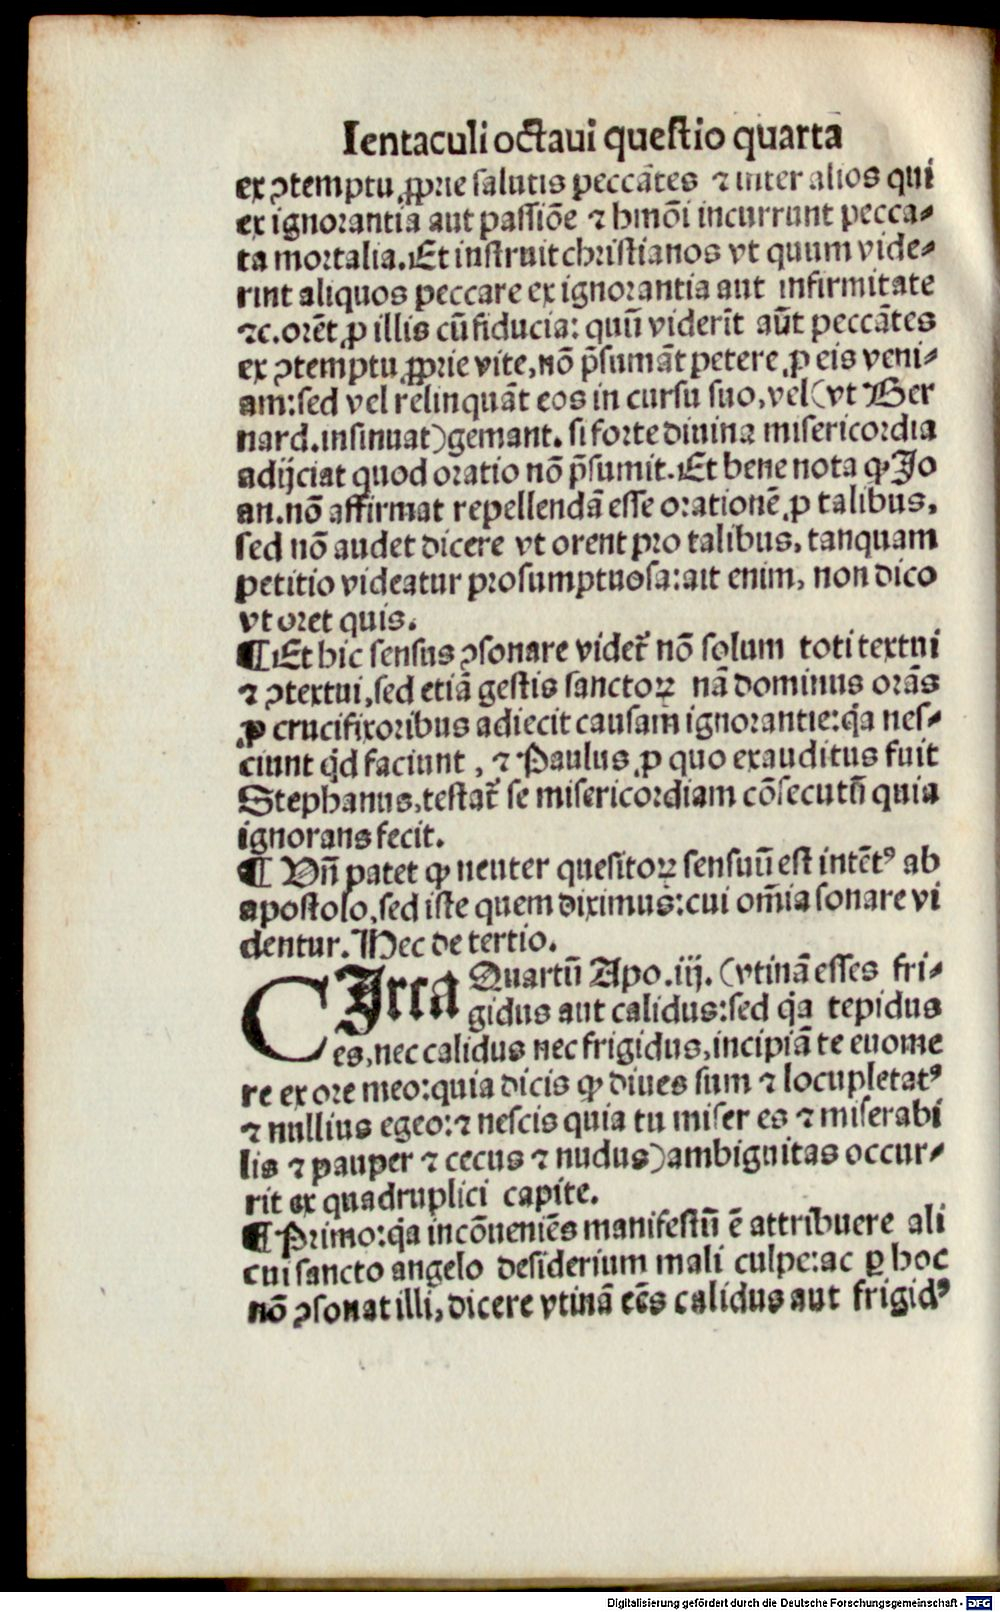 Ientaculi octaui questio quarta
ex ↄtemptu ꝓprie salutis peccātes ⁊ inter alios qui
ex ignorantia aut passiōe ⁊ hmōi incurrunt pecca-
ta mortalia. Et instruit christianos vt quum vide-
rint aliquos peccare ex ignorantia aut infirmitate
⁊c. orēt ꝓ illis cū fiducia: quū viderīt aūt peccātes
ex ↄtemptu ꝓprie vite, nō p̄sumāt petere ꝓ eis veni-
am: sed vel relinquāt eos in cursu suo, vel (vt Ber
nard. insinuat) gemant. si forte diuina misericordia
adijciat quod oratio nō p̄sumit. Et bene nota ꝙ Jo
an. nō affirmat repellendā esse orationē ꝓ talibus,
sed nō audet dicere vt orent pro talibus, tanquam
petitio videatur prosumptuosa: ait enim, non dico
vt oret quis.
¶ Et hic sensus ↄsonare videt̄ nō solum toti textui
⁊ ↄtextui, sed etiā gestis sanctoꝝ nā dominus orās
ꝓ crucifixoribus adiecit causam ignorantie: q̄a nes-
ciunt q̄d faciunt, ⁊ Paulus ꝓ quo exauditus fuit
Stephanus, testat̄ se misericordiam cōsecutū quia
ignorans fecit.
¶ Vn̄ patet ꝙ neuter quesitoꝝ sensuū est intētꝰ ab
apostolo, sed iste quem diximus: cui om̄ia sonare vi
dentur. Hec de tertio.
CIrca Quartū Apo. iij. (vtinā esses fri-
gidus aut calidus: sed q̄a tepidus
es, nec calidus nec frigidus, incipiā te euome
re ex ore meo: quia dicis ꝙ diues sum ⁊ locupletatꝰ
⁊ nullius egeo: ⁊ nescis quia tu miser es ⁊ miserabi
lis ⁊ pauper ⁊ cecus ⁊ nudus) ambiguitas occur-
rit ex quadruplici capite.
¶ Primo: q̄a incōueniēs manifestū ē attribuere ali
cui sancto angelo desiderium mali culpe: ac ꝑ hoc
nō ↄsonat illi, dicere vtinā eēs calidus aut frigidꝰ
Digitalisierung gefördert durch die Deutsche Forschungsgemeinschaft - DFG